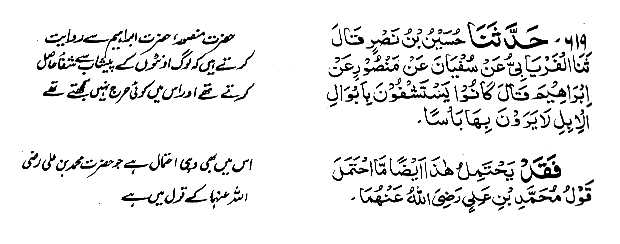 ۶۱۹۔ حَدَّثَنَا حُسَيْنُ بْنُ نَصْرٍ قَالَ
ثَنَا الْفَرْيَابِيُّ عَنْ سُفْيَانَ عَنْ مَنْصُوْرٍ عَنْ
اِبْرَاهِيْمَ قَالَ كَانُوْا يَسْتَشْفُوْنَ بِاَبْوَالِ
الْاِبِلِ لَا يَرَوْنَ بِهَا بَأْسًا۔
فَقَدْ يَحْتَمِلُ هٰذَا اَيْضًا مَّا احْتَمَلَ
قَوْلُ مُحَمَّدِ بْنِ عَلِيٍّ رَضِيَ اللّٰهُ عَنْهُمَا۔
حضرت منصور، حضرت ابراہیم سے روایت
کرتے ہیں کہ لوگ اونٹوں کے پیشاب سے شفا حاصل
کرتے تھے اور اس میں کوئی حرج نہیں سمجھتے تھے
اس میں بھی وہی احتمال ہے جو حضرت محمد بن علی رضی
اللہ عنہما کے قول میں ہے